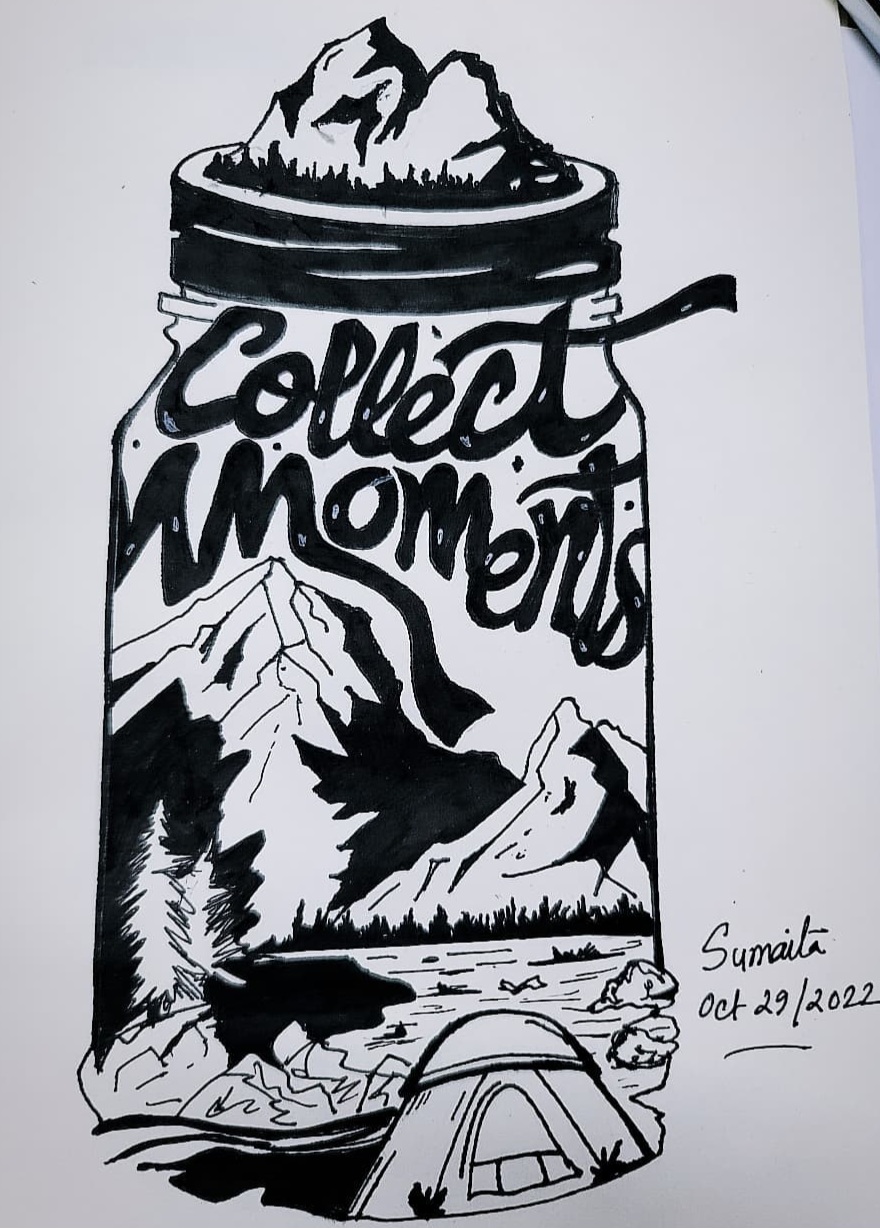 Collect
Moments
Sumaita
Oct 29/2022